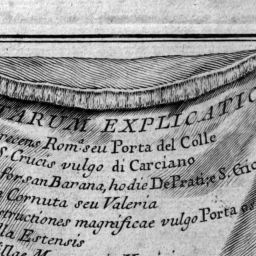 TARUM EXPLICATIO
recens Rom.ª seu Porta del Colle
S. Crucis vulgo di Carciano
forsan Barana, hodie De Prati; e S. Gio
Cornuta seu Valeria
structiones magnificae vulgo Porta os
lla Estensis